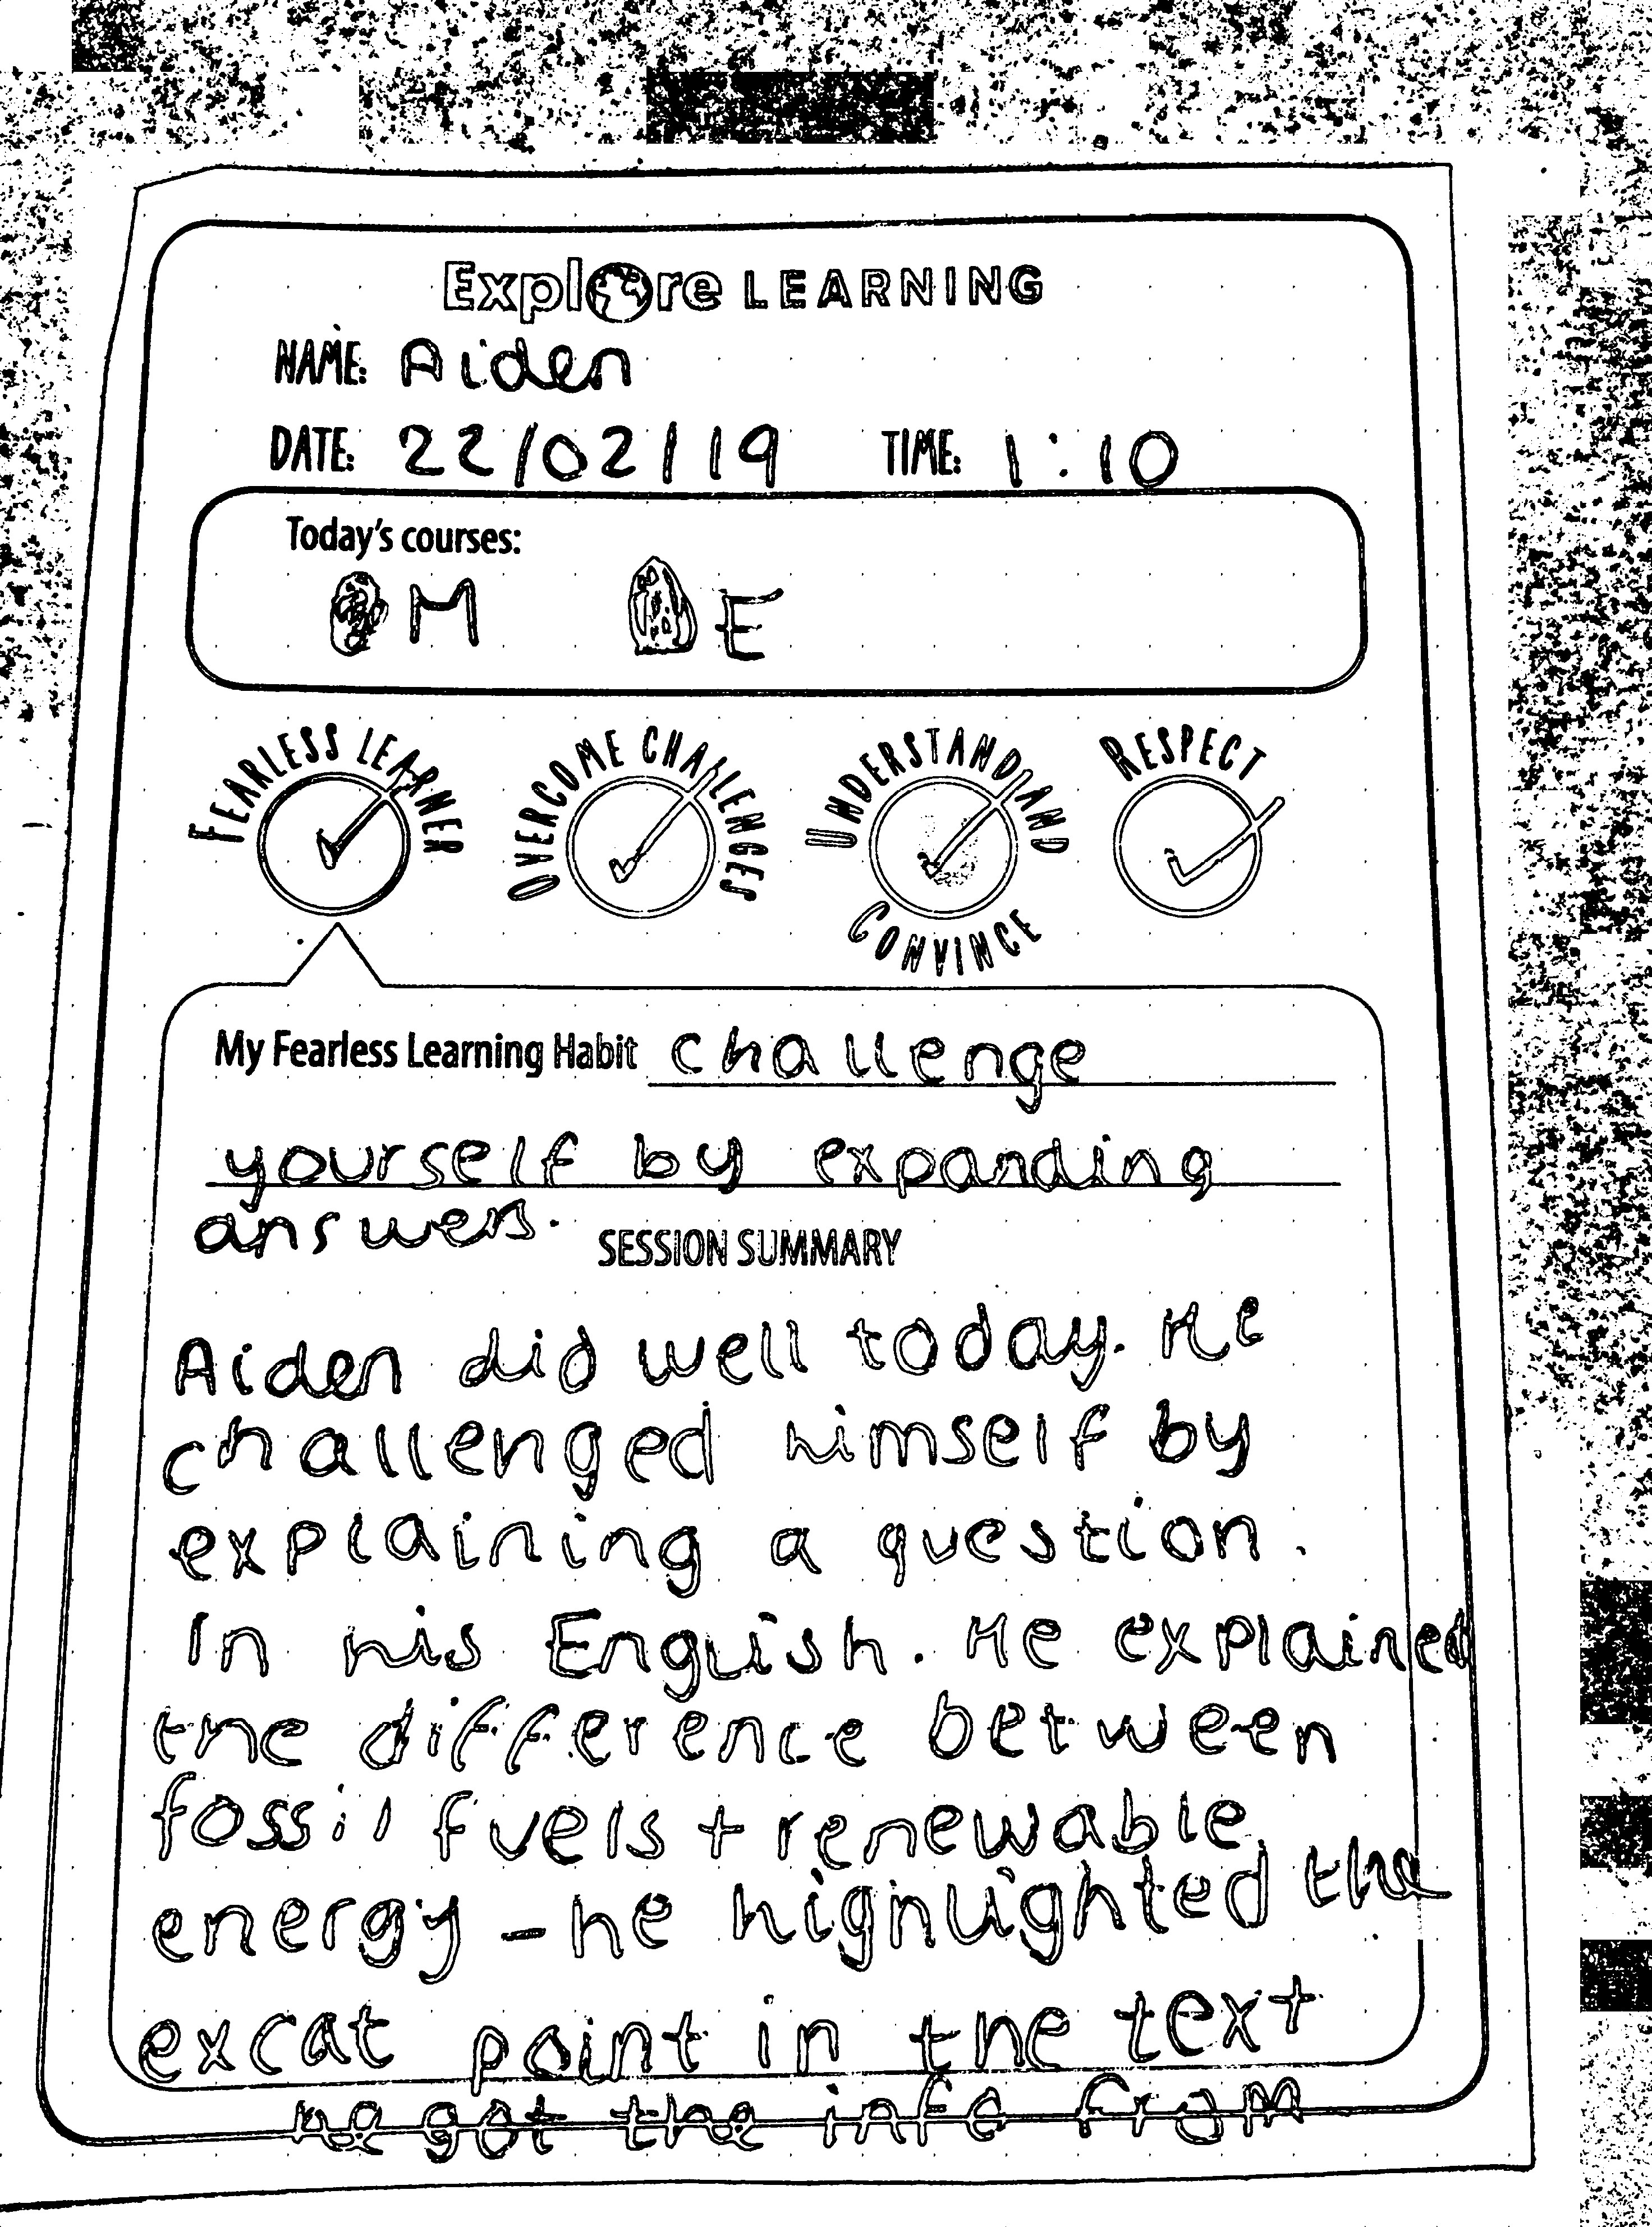 Explore LEARNING
NAME: Aiden
DATE: 22/02/19 TIME: 1:10
Today's courses:
M E
FEARLESS LEARNER OVERCOME CHALLENGES UNDERSTAND AND CONVINCE RESPECT
My Fearless Learning Habit challenge
yourself by expanding
answers.
SESSION SUMMARY
Aiden did well today. He
challenged himself by
explaining a question.
In his English. He explained
the difference between
fossil fuels + renewable
energy - he highlighted the
excat point in the text
he got the info from